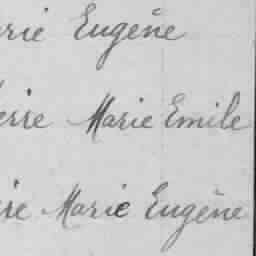 rie Eugène
erre Marie Emile
re Marie Eugène